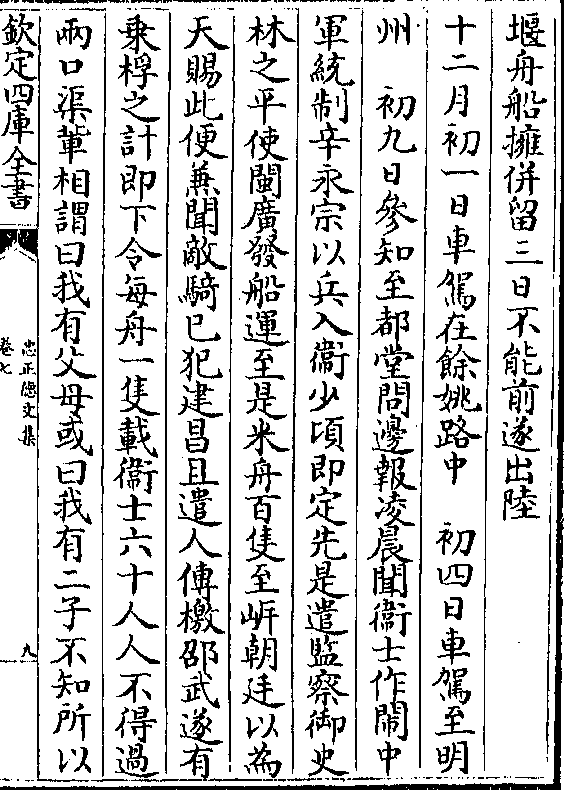 堰舟船擁併留三日不能前遂出陸
十二月初一日車駕在餘姚路中　初四日車駕至明
州　初九日參知至都堂問邊報凌晨聞衞士作閙中
軍統制辛永宗以兵入衞少頃即定先是遣監察御史
林之平使閩廣發船運至是米舟百隻至岸朝廷以為
天賜此便兼聞敵騎已犯建昌且遣人傳檄邵武遂有
乗桴之計即下令每舟一隻載衞士六十人人不得過
兩口渠輩相謂曰我有父母或曰我有二子不知所以
欽定四庫全書
忠正德文集
卷七
九